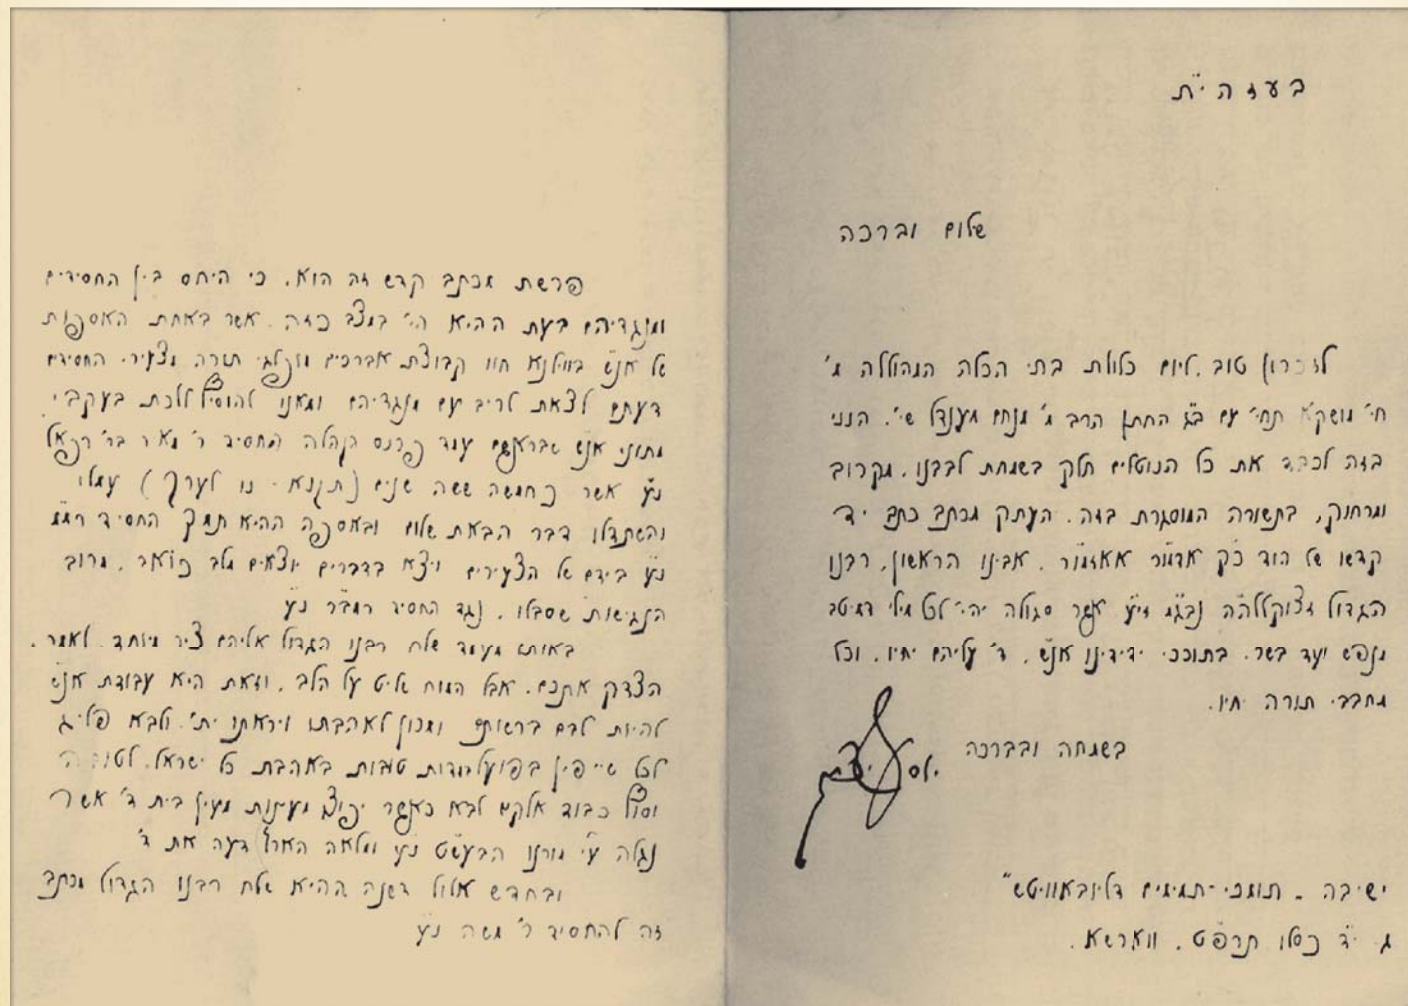 בעזהי״ת
שלום וברכה
לזכרון טוב, ליום כלולת בתי הכלה המהוללה מ׳
חי׳ מושקא תחי׳ עם ב״ג החתן הרב מ׳ מנחם מענדל שי׳. הנני
בזה לכבד את כל הנוטלים חלק בשמחת לבבנו, מקרוב
ומרחוק, בתשורה המוסגרת בזה. העתק מכתב כתב יד
קדשו של הוד כ״ק אדמו״ר אאזמו״ר, אבינו הראשון, רבנו
הגדול זצוקללה״ה נבג״מ זי״ע אשר סגולה יהי׳ לכל מילי דמיטב
מנפש ועד בשר, בתוככי ידידינו אנ״ש, ד׳ עליהם יחיו, וכל
מחבבי תורה יחיו.
בשמחה ובברכה
יוסף יצחק
ישיבה - תומכי-תמימים דליובאוויטש״
ג׳ י״ד כסלו תרפ״ט, ווארשא.
פרשת מכתב קדש זה הוא, כי היחס בין החסידים
ומנגדיהם בעת ההיא הי׳ במצב כזה, אשר באחת האספות
של אנ״ש בווילנא חוו קבוצת אברכים מופלגי תורה מצעירי החסידים
דעתם לצאת לריב עם מנגדיהם ומאנו להוסיף ללכת בעקבי
מתוני אנ״ש שבראשם עמד פרנס הקהלה החסיד ר׳ מאיר בר׳ רפאל
נ״ע אשר כחמשה ששה שנים (תקנא - נו לערך) עמלו
והשתדלו דבר הבאת שלום ובאספה ההיא תמך החסיד רמ״מ
נ״ע בידם של הצעירים ויצא בדברים יוצאים מלב כואב, מרוב
הנגישות שסבלו, נגד החסיד רמב״ר נ״ע
באותו מעמד שלח רבנו הגדול אליהם ציר מיוחד, לאמר,
הצדק אתכם, אבל המוח שליט על הלב, וזאת היא עבודת אנ״ש
להיות לבם ברשותם ומכון לאהבתו ויראתו ית׳, ולבא פליג
לכל שייפין בפועל עבודות טובות באהבת כל ישראל
וסוף כבוד אלקים לבא כאשר יפוצו מעינות מעין בית ד׳ אשר
נגלה ע״י מורנו הבעש״ט נ״ע ומלאה הארץ דעה את ד׳
ובחדש אלול דשנה ההיא שלח רבנו הגדול מכתב
זה להחסיד ר׳ משה נ״ע